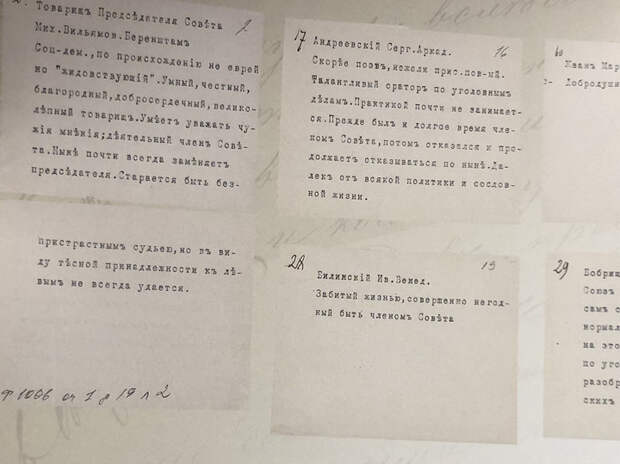 2
Товарищ Предсѣдателя Совѣта
Мих.Вильямов.Беренштам
Соц-дем.,по происхождению не еврей
но "жидовствующій".Умный,честный,
благородный,добросердечный,велико-
лѣпный товарищ.Умѣет уважать чу-
жія мнѣнія;дѣятельный член Совѣ-
та.Нынѣ почти всегда замѣняет
предсѣдателя.Старается быть без-
пристрастнымъ судьею,но въ ви-
ду тѣсной принадлежности къ лѣ-
вымъ не всегда удается.
Ф 1006 оп 1 д 19 л 2
17 16
Андреевскій Серг.Аркад.
Скорѣе поэт,нежели прис.пов-ый.
Талантливый ораторъ по уголовным
дѣлам.Практикой почти не занимает-
ся.Прежде былъ и долгое время чле-
ном Совѣта,потом отказался и про-
должает отказываться по нынѣ.Да-
лек от всякой политики и сослов-
ной жизни.
28 13
Билинскій Ив.Венед.
Забитый жизнью,совершенно негод-
ный быть членом Совѣта
Жван Мар
Добродуш
29
Бобрищ
Союз
сам с
нормал
на это
по уго
разобр
ских